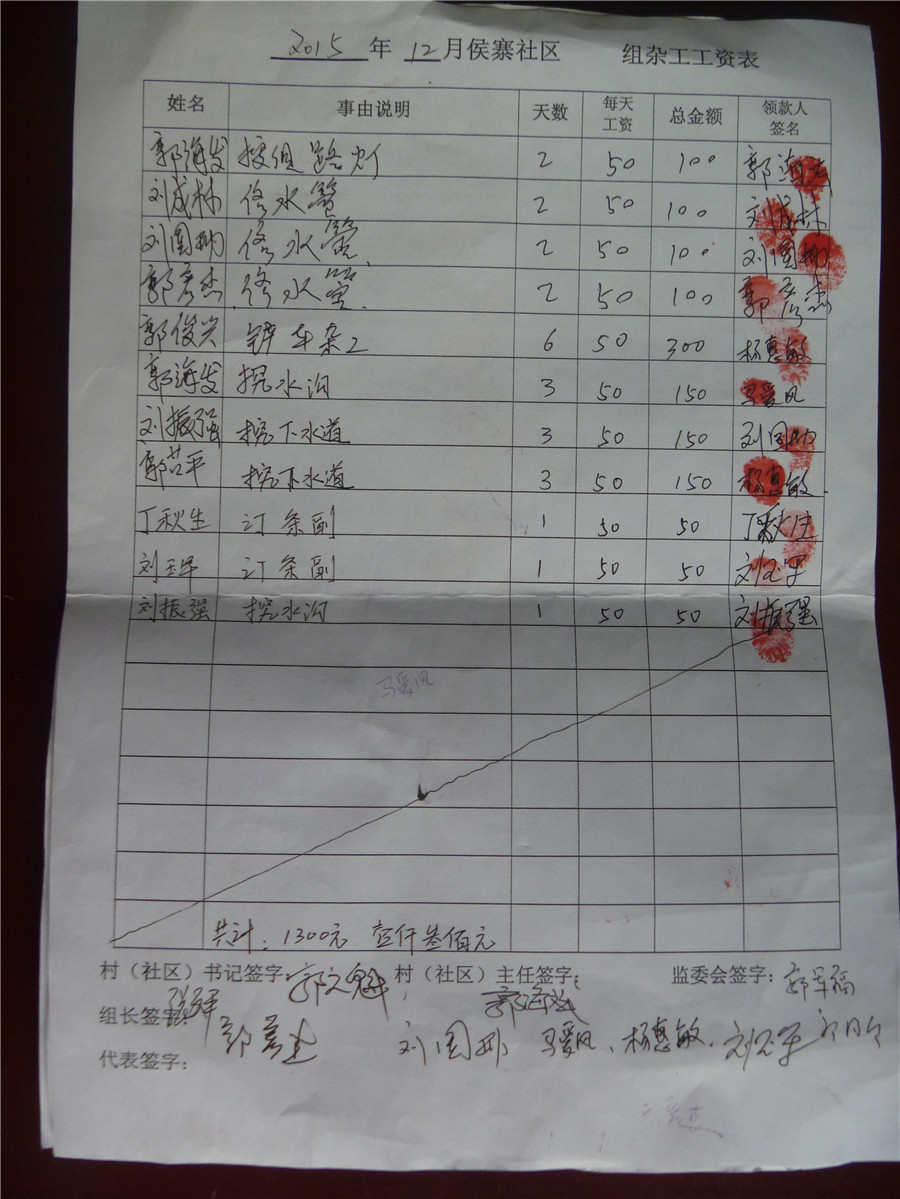 2015 年 12 月侯寨社区 组杂工工资表
姓名 事由说明 天数 每天工资 总金额 领款人签名
郭海发 按组路灯 2 50 100 郭海发
刘成林 修水管 2 50 100 刘成林
刘国柳 修水管 2 50 100 刘国柳
郭彦杰 修水管 2 50 100 郭彦杰
郭俊兴 铲车杂工 6 50 300 杨惠敏
郭海发 挖水沟 3 50 150 马爱风
刘振强 挖下水道 3 50 150 刘国柳
郭苕平 挖下水道 3 50 150 杨惠敏
丁秋生 订条副 1 50 50 丁秋生
刘玉军 订条副 1 50 50 刘玉军
刘振强 挖水沟 1 50 50 刘振强
马爱风
共计：1300元 壹仟叁佰元
村（社区）书记签字：郭文魁 村（社区）主任签字： 监委会签字：郭军福
组长签字：
刘国柳 马爱风、杨惠敏、刘玉军
代表签字：